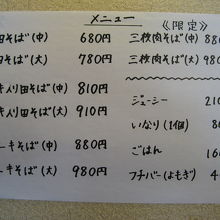 メニュー
田そば(中) 680円
田そば(大) 780円
キ入り田そば(中) 810円
キ入り田そば(大) 910円
ーキそば(中) 880円
ーキそば(大) 980円
《限定》
三枚肉そば(中)
三枚肉そば(大) 9
ジューシー 21
いなり(1個) 80
ごはん 16
フチバー(よもぎ)